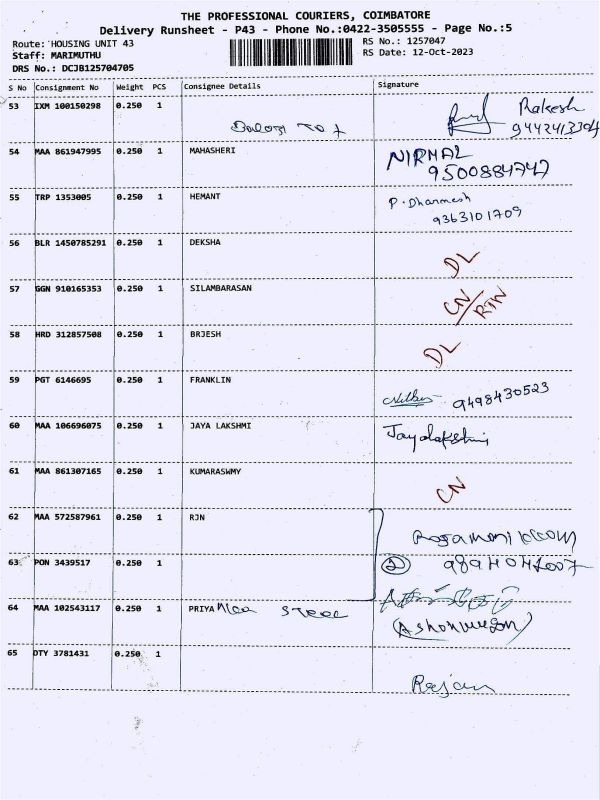 THE PROFESSIONAL COURIERS, COIMBATORE
Delivery Runsheet - P43 - Phone No.:0422-3505555 - Page No.:5
Route: HOUSING UNIT 43
RS No.: 1257047
Staff: MARIMUTHU
RS Date: 12-Oct-2023
DRS No.: DCJB125704705
S No Consignment No Weight PCS Consignee Details Signature
53 IXM 100150298 0.250 1 Rakesh
54 MAA 861947995 0.250 1 MAHASHERI NIRMAL
55 TRP 1353005 0.250 1 HEMANT P. Dharmesh
9363101709
56 BLR 1450785291 0.250 1 DEKSHA DL
57 GGN 910165353 0.250 1 SILAMBARASAN CN/RTN
58 HRD 312857508 0.250 1 BRJESH DL
59 PGT 6146695 0.250 1 FRANKLIN 9498430523
60 MAA 106696075 0.250 1 JAYA LAKSHMI Jayalakshmi
61 MAA 861307165 0.250 1 KUMARASWMY CN
62 MAA 572587961 0.250 1 RJN
63 PON 3439517 0.250 1 2
64 MAA 102543117 0.250 1 PRIYA
65 DTY 3781431 0.250 1
Rajan